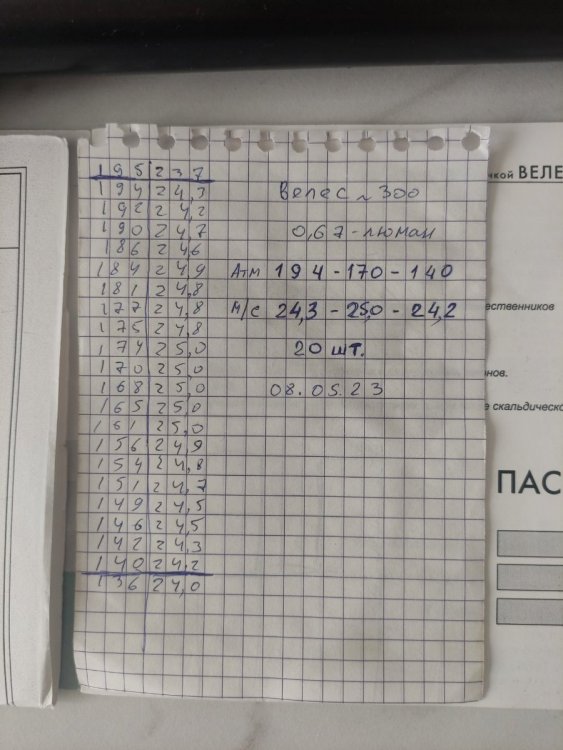 195 237
194 24,3
192 24,2
190 24,7
186 246
184 249
181 24,8
177 24,8
175 24,8
174 25,0
170 25,0
168 25,0
165 25,0
161 25,0
156 24,9
154 24,8
151 24,7
149 24,5
146 24,5
142 24,3
140 24,2
136 24,0
Велес ~ 300
0,67 - люман
Атм 194 - 170 - 140
м/с 24,3 - 25,0 - 24,2
20 шт.
08.05.23
чкой ВЕЛЕ
ественников
нов.
е скальдическо
ПАС